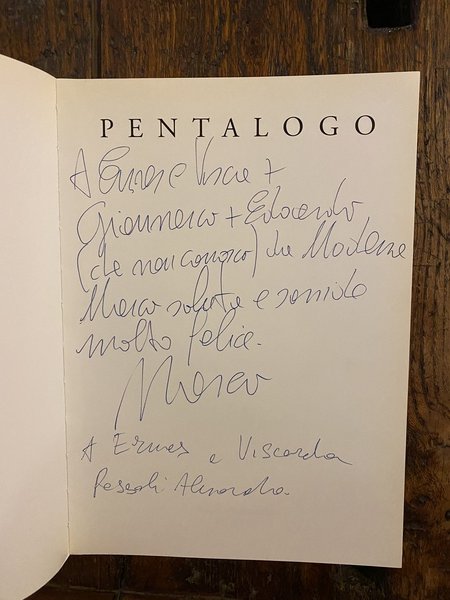 PENTALOGO
A Ermes e Visca +
Gianmarco + Edoardo
(che non conosco) da Modena
Marco saluta e sorride
molto felice.
Marco
A Ermes e Viscarda
Pascoli Alexandra.